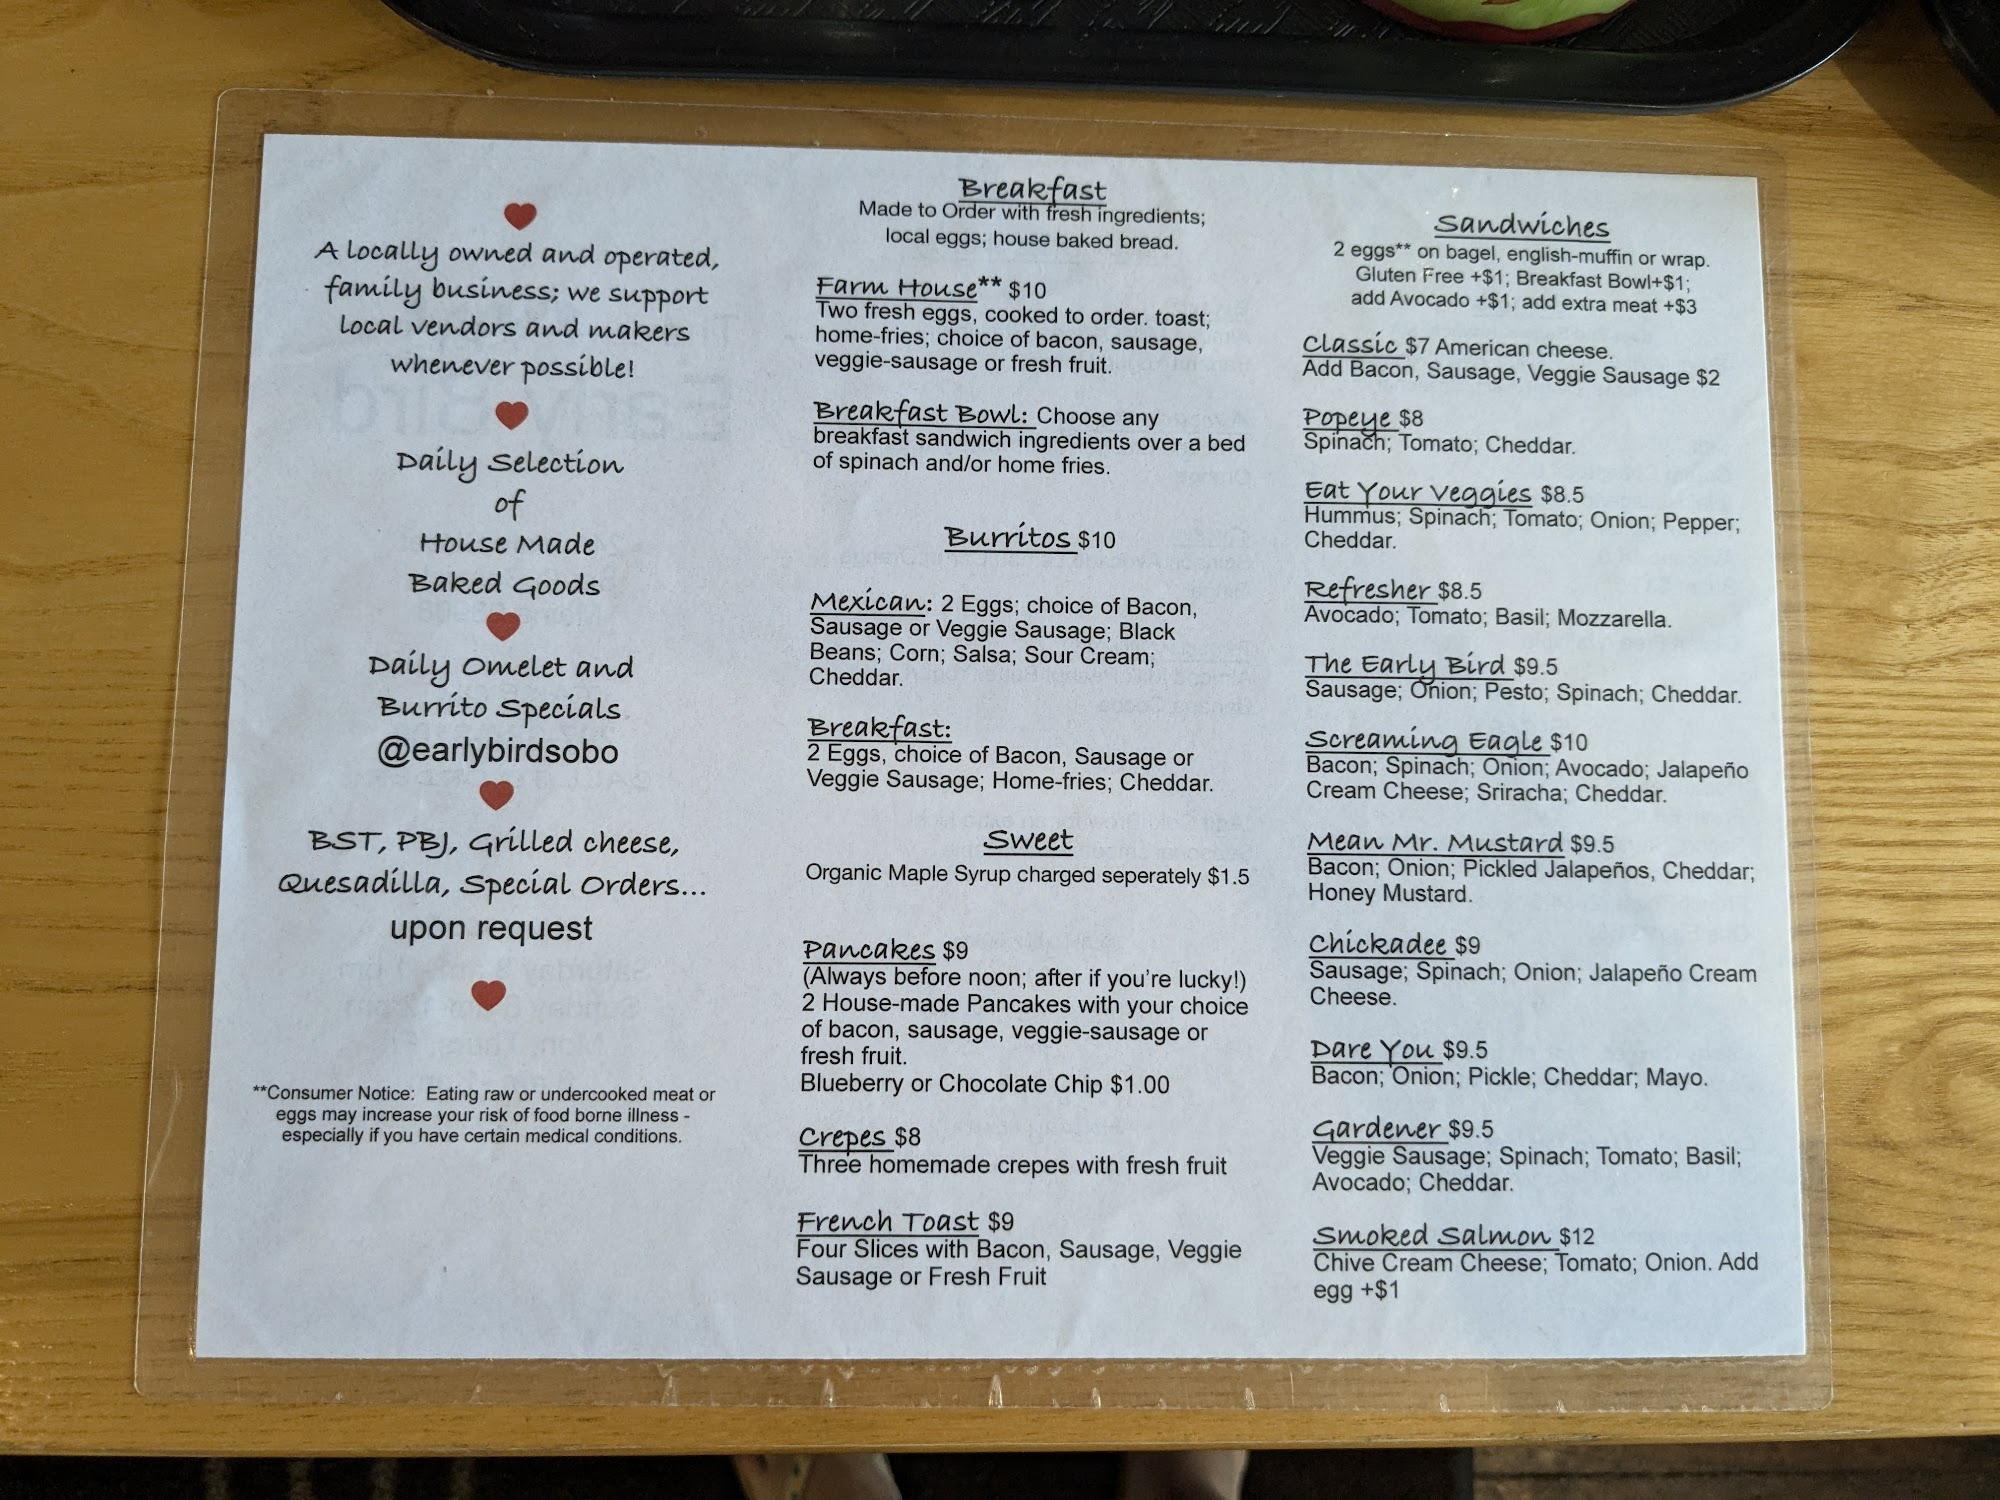 A locally owned and operated,
family business; we support
local vendors and makers
whenever possible!
Daily Selection
of
House Made
Baked Goods
Daily Omelet and
Burrito Specials
@earlybirdsobo
BST, PBJ, Grilled cheese,
Quesadilla, Special Orders...
upon request
**Consumer Notice: Eating raw or undercooked meat or
eggs may increase your risk of food borne illness -
especially if you have certain medical conditions.
Breakfast
Made to Order with fresh ingredients;
local eggs; house baked bread.
Farm House** $10
Two fresh eggs, cooked to order. toast;
home-fries; choice of bacon, sausage,
veggie-sausage or fresh fruit.
Breakfast Bowl: Choose any
breakfast sandwich ingredients over a bed
of spinach and/or home fries.
Burritos $10
Mexican: 2 Eggs; choice of Bacon,
Sausage or Veggie Sausage; Black
Beans; Corn; Salsa; Sour Cream;
Cheddar.
Breakfast:
2 Eggs, choice of Bacon, Sausage or
Veggie Sausage; Home-fries; Cheddar.
Sweet
Organic Maple Syrup charged seperately $1.5
Pancakes $9
(Always before noon; after if you're lucky!)
2 House-made Pancakes with your choice
of bacon, sausage, veggie-sausage or
fresh fruit.
Blueberry or Chocolate Chip $1.00
Crepes $8
Three homemade crepes with fresh fruit
French Toast $9
Four Slices with Bacon, Sausage, Veggie
Sausage or Fresh Fruit
Sandwiches
2 eggs** on bagel, english-muffin or wrap.
Gluten Free +$1; Breakfast Bowl+$1;
add Avocado +$1; add extra meat +$3
Classic $7 American cheese.
Add Bacon, Sausage, Veggie Sausage $2
Popeye $8
Spinach; Tomato; Cheddar.
Eat Your Veggies $8.5
Hummus; Spinach; Tomato; Onion; Pepper;
Cheddar.
Refresher $8.5
Avocado; Tomato; Basil; Mozzarella.
The Early Bird $9.5
Sausage; Onion; Pesto; Spinach; Cheddar.
Screaming Eagle $10
Bacon; Spinach; Onion; Avocado; Jalapeño
Cream Cheese; Sriracha; Cheddar.
Mean Mr. Mustard $9.5
Bacon; Onion; Pickled Jalapeños, Cheddar;
Honey Mustard.
Chickadee $9
Sausage; Spinach; Onion; Jalapeño Cream
Cheese.
Dare You $9.5
Bacon; Onion; Pickle; Cheddar; Mayo.
Gardener $9.5
Veggie Sausage; Spinach; Tomato; Basil;
Avocado; Cheddar.
Smoked Salmon $12
Chive Cream Cheese; Tomato; Onion. Add
egg +$1